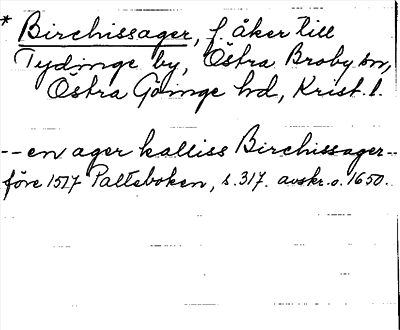 * Birchissager, f. åker till
Tydinge by, Östra Broby sn,
Östra Göinge hd, Krist. l.
-- en ager kalliss Birchissager --
före 1517 Palteboken, s. 317. avskr. o. 1650.